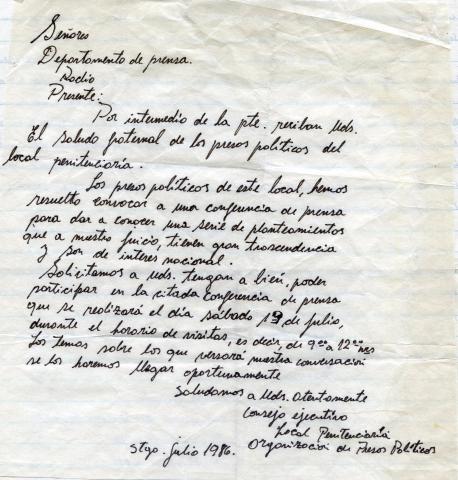 Señores
Departamento de prensa.
Radio
Presente:
Por intermedio de la pte. reciban Uds.
El saludo fraternal de los presos politicos del
local penitenciaría.
Los presos politicos de este local, hemos
resuelto convocar a una conferencia de prensa
para dar a conocer una serie de planteamientos
que a nuestro juicio, tienen gran trascendencia
y son de interes nacional.
Solicitamos a Uds. tengan a bien, poder
participar en la citada conferencia de prensa
que se realizará el día sábado 19 de julio,
durante el horario de visitas, es decir, de 9°° a 12°° hrs
Los temas sobre los que versará nuestra conversación
se los haremos llegar oportunamente
Saludamos a Uds. Atentamente
Consejo ejecutivo
Local Penitenciaría
Organización de Presos Politicos
Stgo. julio 1986.